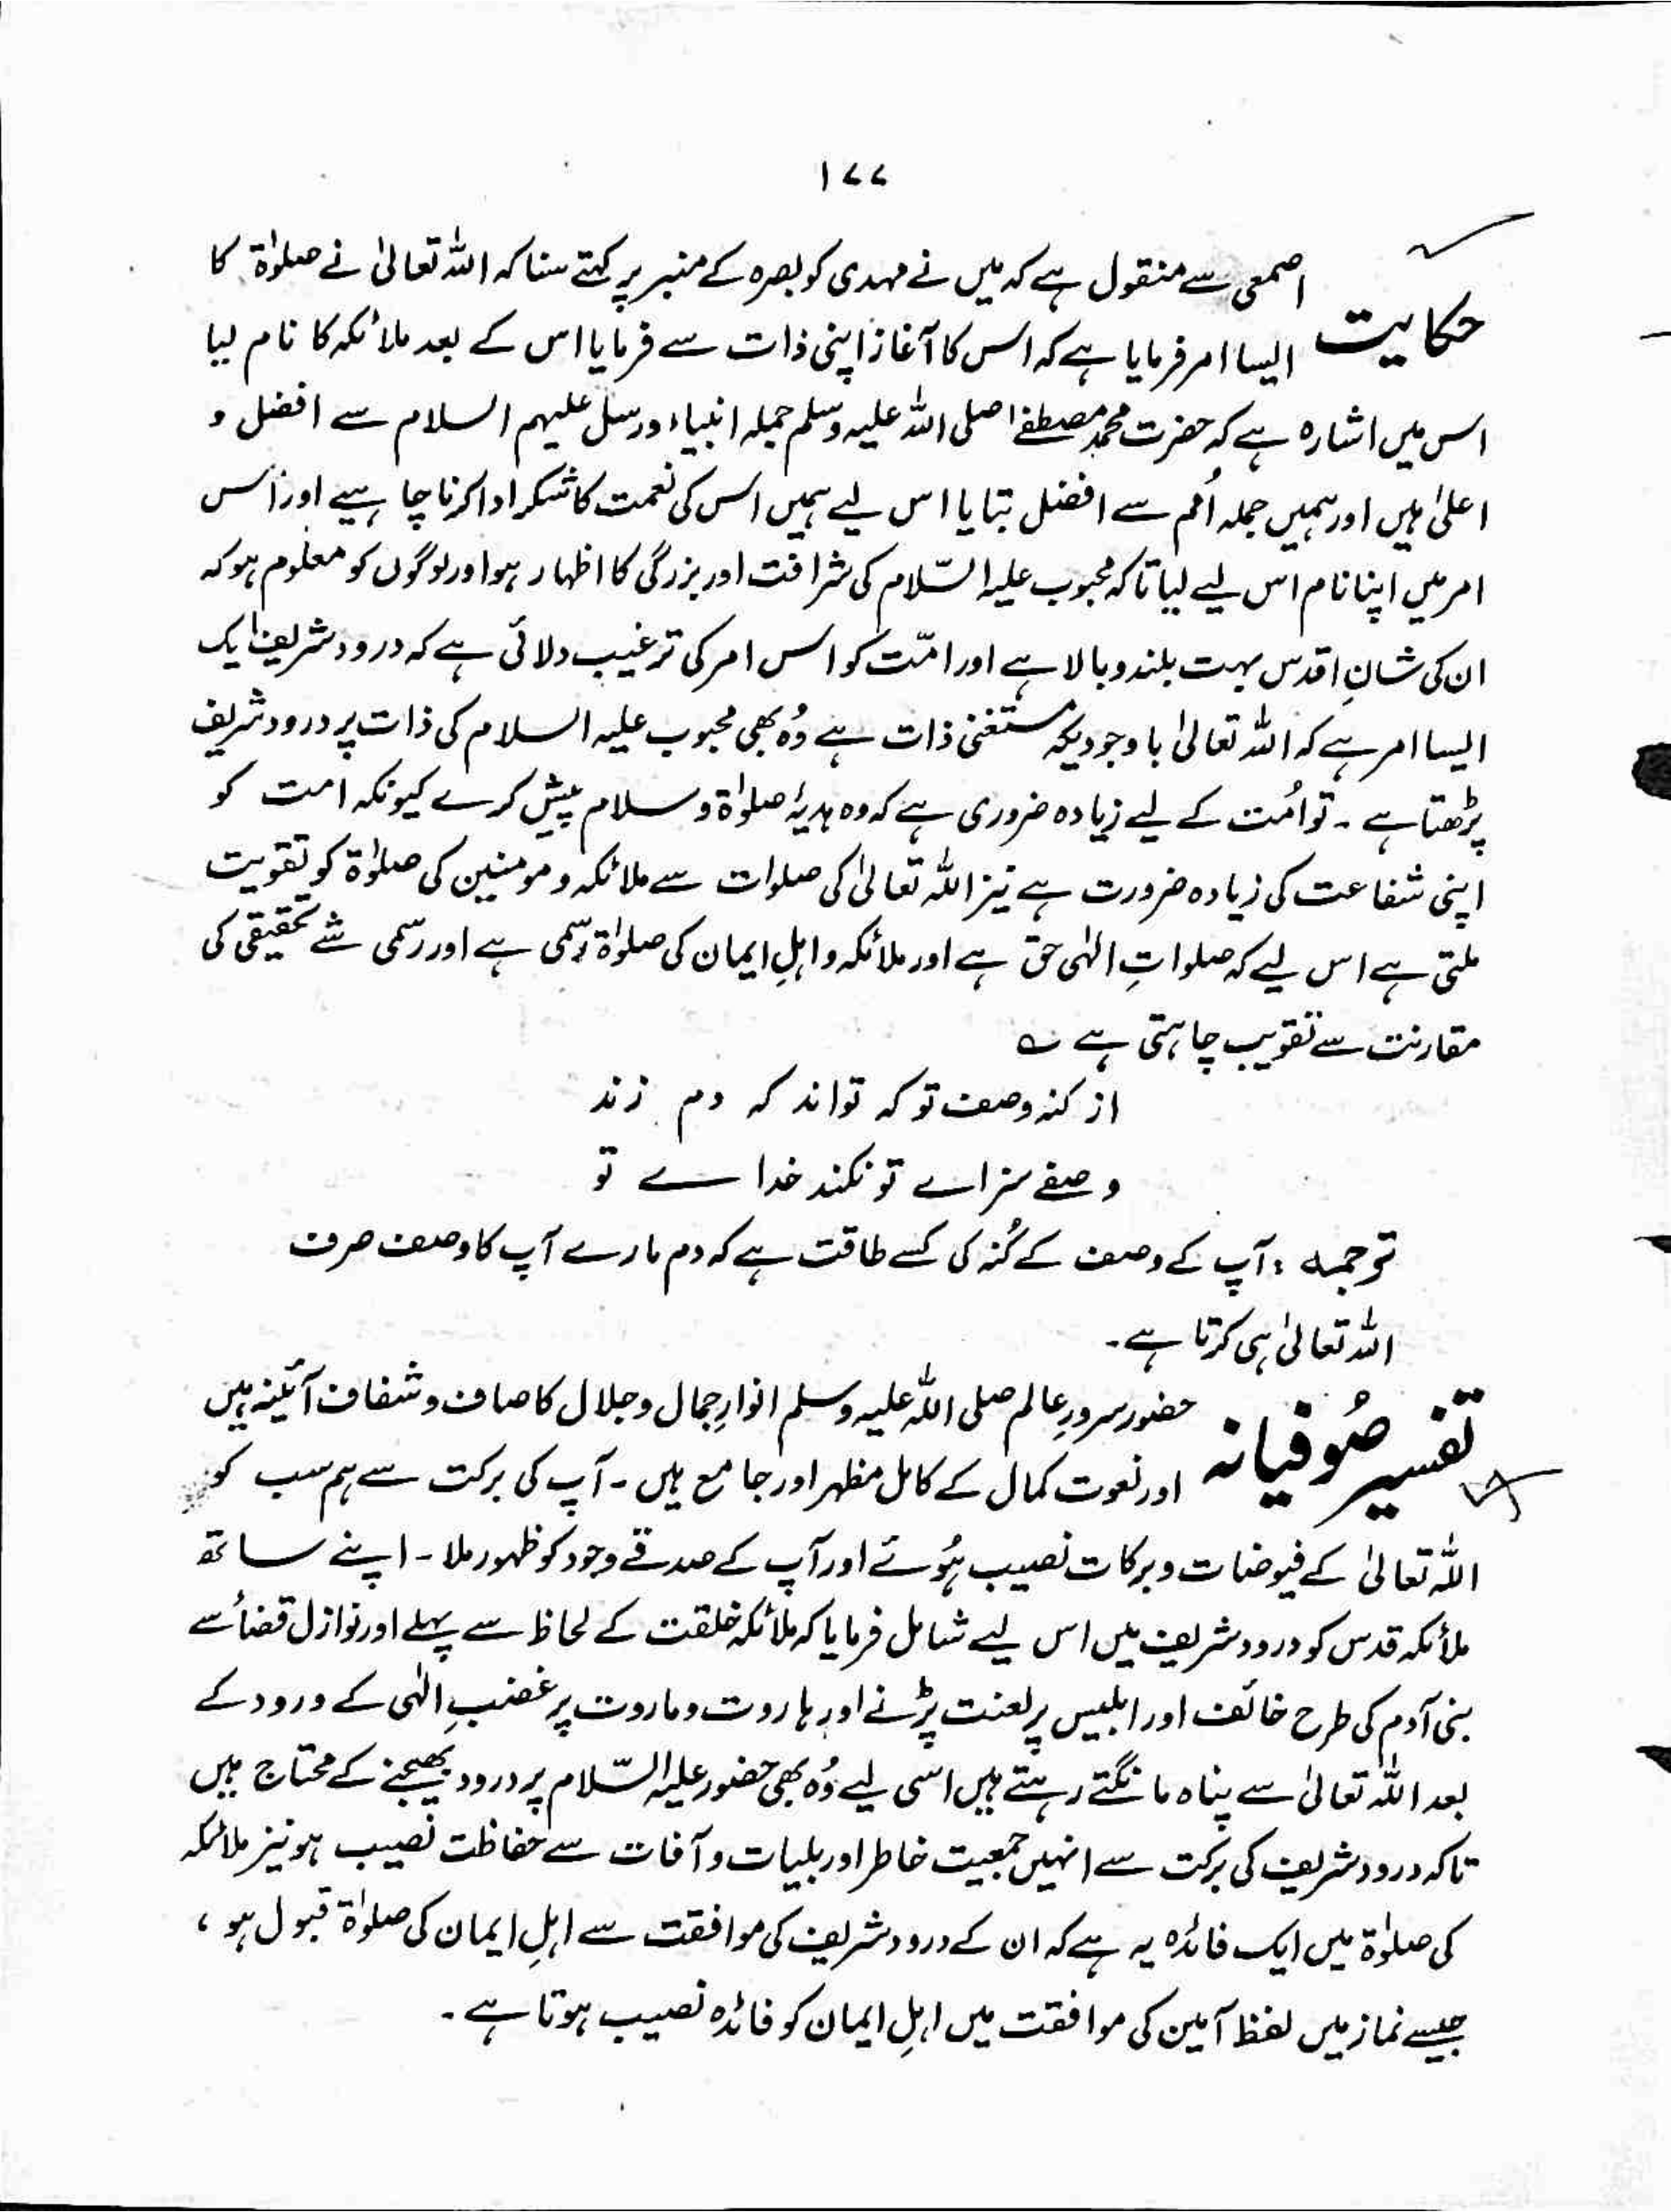 ۱۷۷
حکایت
اصمعی سے منقول ہے کہ میں نے مہدی کو بصرہ کے منبر پر کہتے سنا کہ اللہ تعالیٰ نے صلوٰۃ کا
ایسا امر فرمایا ہے کہ اس کا آغاز اپنی ذات سے فرمایا اس کے بعد ملائکہ کا نام لیا
اس میں اشارہ ہے کہ حضرت محمد مصطفےٰ صلی اللہ علیہ وسلم جملہ انبیاء و رسل علیہم السلام سے افضل و
اعلیٰ ہیں اور ہمیں جملہ اُمم سے افضل بتایا اس لیے ہمیں اس کی نعمت کا شکر ادا کرنا چاہیے اور اس
امر میں اپنا نام اس لیے لیا تا کہ محبوب علیہ السّلام کی شرافت اور بزرگی کا اظہار ہو اور لوگوں کو معلوم ہو کہ
ان کی شانِ اقدس بہت بلند و بالا ہے اور امّت کو اس امر کی ترغیب دلائی ہے کہ درود شریف ایک
ایسا امر ہے کہ اللہ تعالیٰ باوجودیکہ مستغنی ذات ہے وُہ بھی محبوب علیہ السلام کی ذات پر درود شریف
پڑھتا ہے ۔ تو اُمت کے لیے زیادہ ضروری ہے کہ وہ ہدیۂ صلوٰۃ و سلام پیش کرے کیونکہ امت کو
اپنی شفاعت کی زیادہ ضرورت ہے نیز اللہ تعالیٰ کی صلوات سے ملائکہ و مومنین کی صلوٰۃ کو تقویت
ملتی ہے اس لیے کہ صلواتِ الٰہی حق ہے اور ملائکہ و اہلِ ایمان کی صلوٰۃ رسمی ہے اور رسمی شے تحقیقی کی
مقارنت سے تقویب چاہتی ہے ؎
از کنہ وصف تو کہ تواند کہ دم زند
وصفے سزاے تو نکند خداے تو
ترجمہ : آپ کے وصف کے کُنہ کی کسے طاقت ہے کہ دم مارے آپ کا وصف صرف
اللہ تعالیٰ ہی کرتا ہے ۔
تفسیر صُوفیانہ
حضور سرورِ عالم صلی اللہ علیہ وسلم انوارِ جمال و جلال کا صاف و شفاف آئینہ ہیں
اور نعوت کمال کے کامل مظہر اور جامع ہیں ۔ آپ کی برکت سے ہم سب کو
اللہ تعالیٰ کے فیوضات و برکات نصیب ہُوئے اور آپ کے صدقے وجود کو ظہور ملا ۔ اپنے ساتھ
ملائکہ قدس کو درود شریف میں اس لیے شامل فرمایا کہ ملائکہ خلقت کے لحاظ سے پہلے اور نوازل قضأ سے
بنی آدم کی طرح خائف اور ابلیس پر لعنت پڑنے اور ہاروت و ماروت پر غضبِ الٰہی کے ورود کے
بعد اللہ تعالیٰ سے پناہ مانگتے رہتے ہیں اسی لیے وُہ بھی حضور علیہ السّلام پر درود بھیجنے کے محتاج ہیں
تاکہ درود شریف کی برکت سے انہیں جمعیت خاطر اور بلیات و آفات سے حفاظت نصیب ہو نیز ملائکہ
کی صلوٰۃ میں ایک فائدہ یہ ہے کہ ان کے درود شریف کی موافقت سے اہلِ ایمان کی صلوٰۃ قبول ہو ،
جیسے نماز میں لفظ آمین کی موافقت میں اہلِ ایمان کو فائدہ نصیب ہوتا ہے ۔